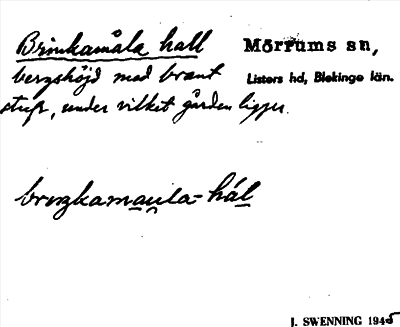 Brinkamåla hall
Mörrums sn,
bergshöjd med brant
Listers hd, Blekinge län.
stup, under vilket gården ligger.
brıŋkamau̯la-hál
J. SWENNING 1945